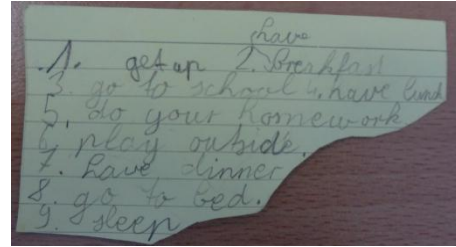 have
1. get up 2. Breakfast
3. go to school 4. have lunch
5. do your homework
6. play outside.
7. have dinner
8. go to bed.
9. sleep